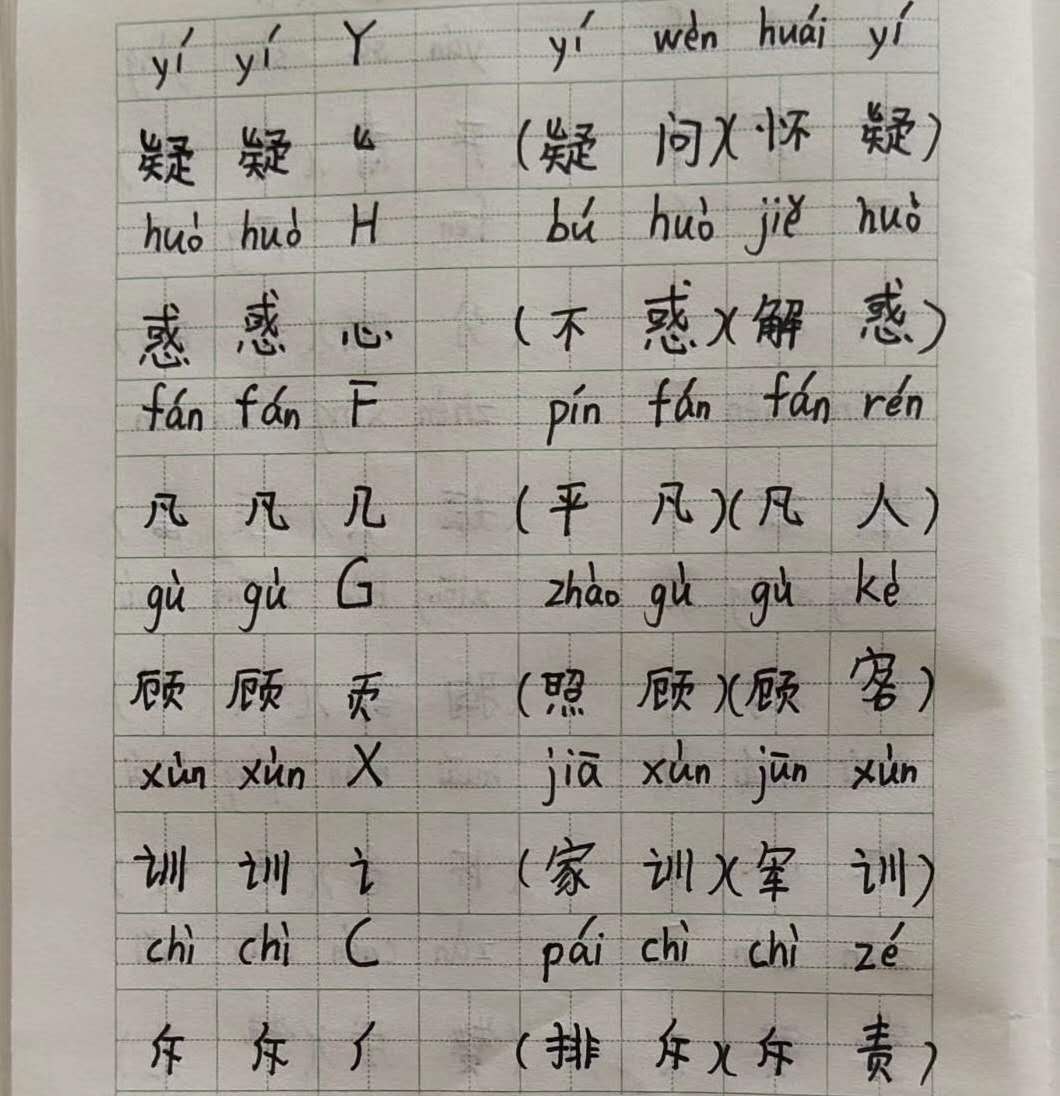 yí yí Y yí wèn huái yí
疑 疑 (疑 问)(怀 疑)
huò huò H bú huò jiě huò
惑 惑 心 (不 惑)(解 惑)
fán fán F pín fán fán rén
凡 凡 几 (平 凡)(凡 人)
gù gù G zhào gù gù kè
顾 顾 页 (照 顾)(顾 客)
xùn xùn X jiā xùn jūn xùn
训 训 讠 (家 训)(军 训)
chì chì C pái chì chì zé
斥 斥 (排 斥)(斥 责)